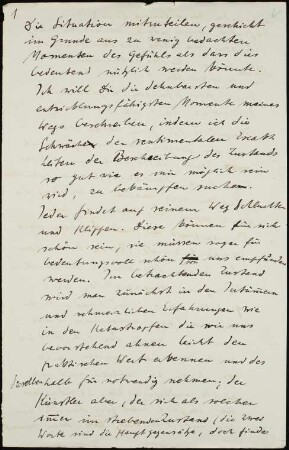 1
Die Situation mitzuteilen, geschieht
im Grunde aus zu wenig bedachten
Momenten des Gefühls als dass dies
bedeutend nützlich werden könnte.
Ich will Dir die dehnbarsten und
entwicklungsfähigsten Momente meines
Wegs beschreiben, indem ich die
Schwächen der sentimentalen
der Beschreibung des Zustands
so gut wie es mir möglich sein
wird, zu bekämpfen suche.
Jeder findet auf seinem Weg Schluchten
und Klippen. Diese können für sich
schön sein, sie müssen sogar für
bedeutungsvoll schön für uns empfunden
werden. Im betrachtenden Zustand
wird man zunächst in den Irrtümern
und schmerzlichen Erfahrungen wie
in den Katastrophen die wir uns
bevorstehend ahnen leicht den
praktischen Wert erkennen und des
halb für notwendig nehmen; der
Künstler aber, der sich als solcher
immer im strebenden Zustand, die zwei
Worte sind die Hauptgegensätze, doch finde